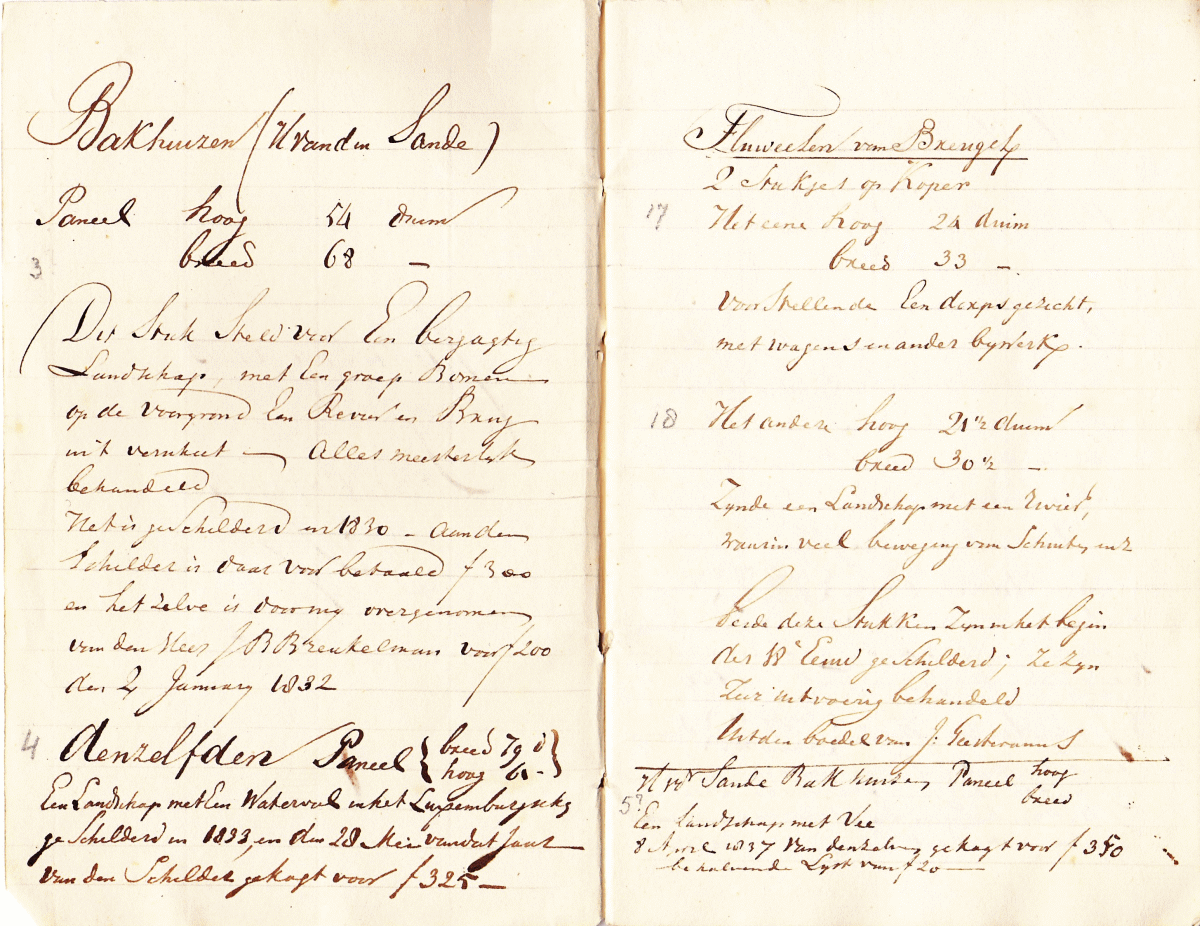 Bakhuizen (H van den Sande)
Paneel hoog 54 duim
breed 68 —
3
Dit Stuk Steld voor Een bergagtig
Landschap, met Een groep Bomen
op de voorgrond Een Revier en Brug
uit vernkeet — Alles meesterlijk
behandeld
Het is geschilderd in 1830 — aan den
Schilder is daar voor betaald f 300
en het zelve is door my overgenomen
van den Heer J B Breukelman voor f 200
den 2 January 1832
4 denzelfden Paneel { breed 79 d }
{ hoog 61 - }
Een Landschap met Een Waterval in het Luxemburgsche
geschilderd in 1833, en den 28 Mei van dat Jaar
van den Schilder gekogt voor f 325 —
Fluweelen van Breugel
2 Stukjes op Koper
17 Het eene hoog 24 duim
breed 33 —
voorstellende Een dorpsgezicht,
met wagens en ander bywerk.
18 Het andere hoog 21 1/2 duim
breed 30 1/2 —
Zynde een Landschap met een rivier,
waarin veel beweging van Schuiten enz
beide deze Stukken Zyn in het begin
der 18e Eeuw geschilderd; Ze Zyn
Zeer uitvoerig behandeld
Uit den boedel van J. Geesteranus
H vd Sande Bakhuizen Paneel hoog
breed
5?
Een Landschap met Vee
8 April 1837 van denzelven gekogt voor f 350
behalvende Lyst van f 20 —